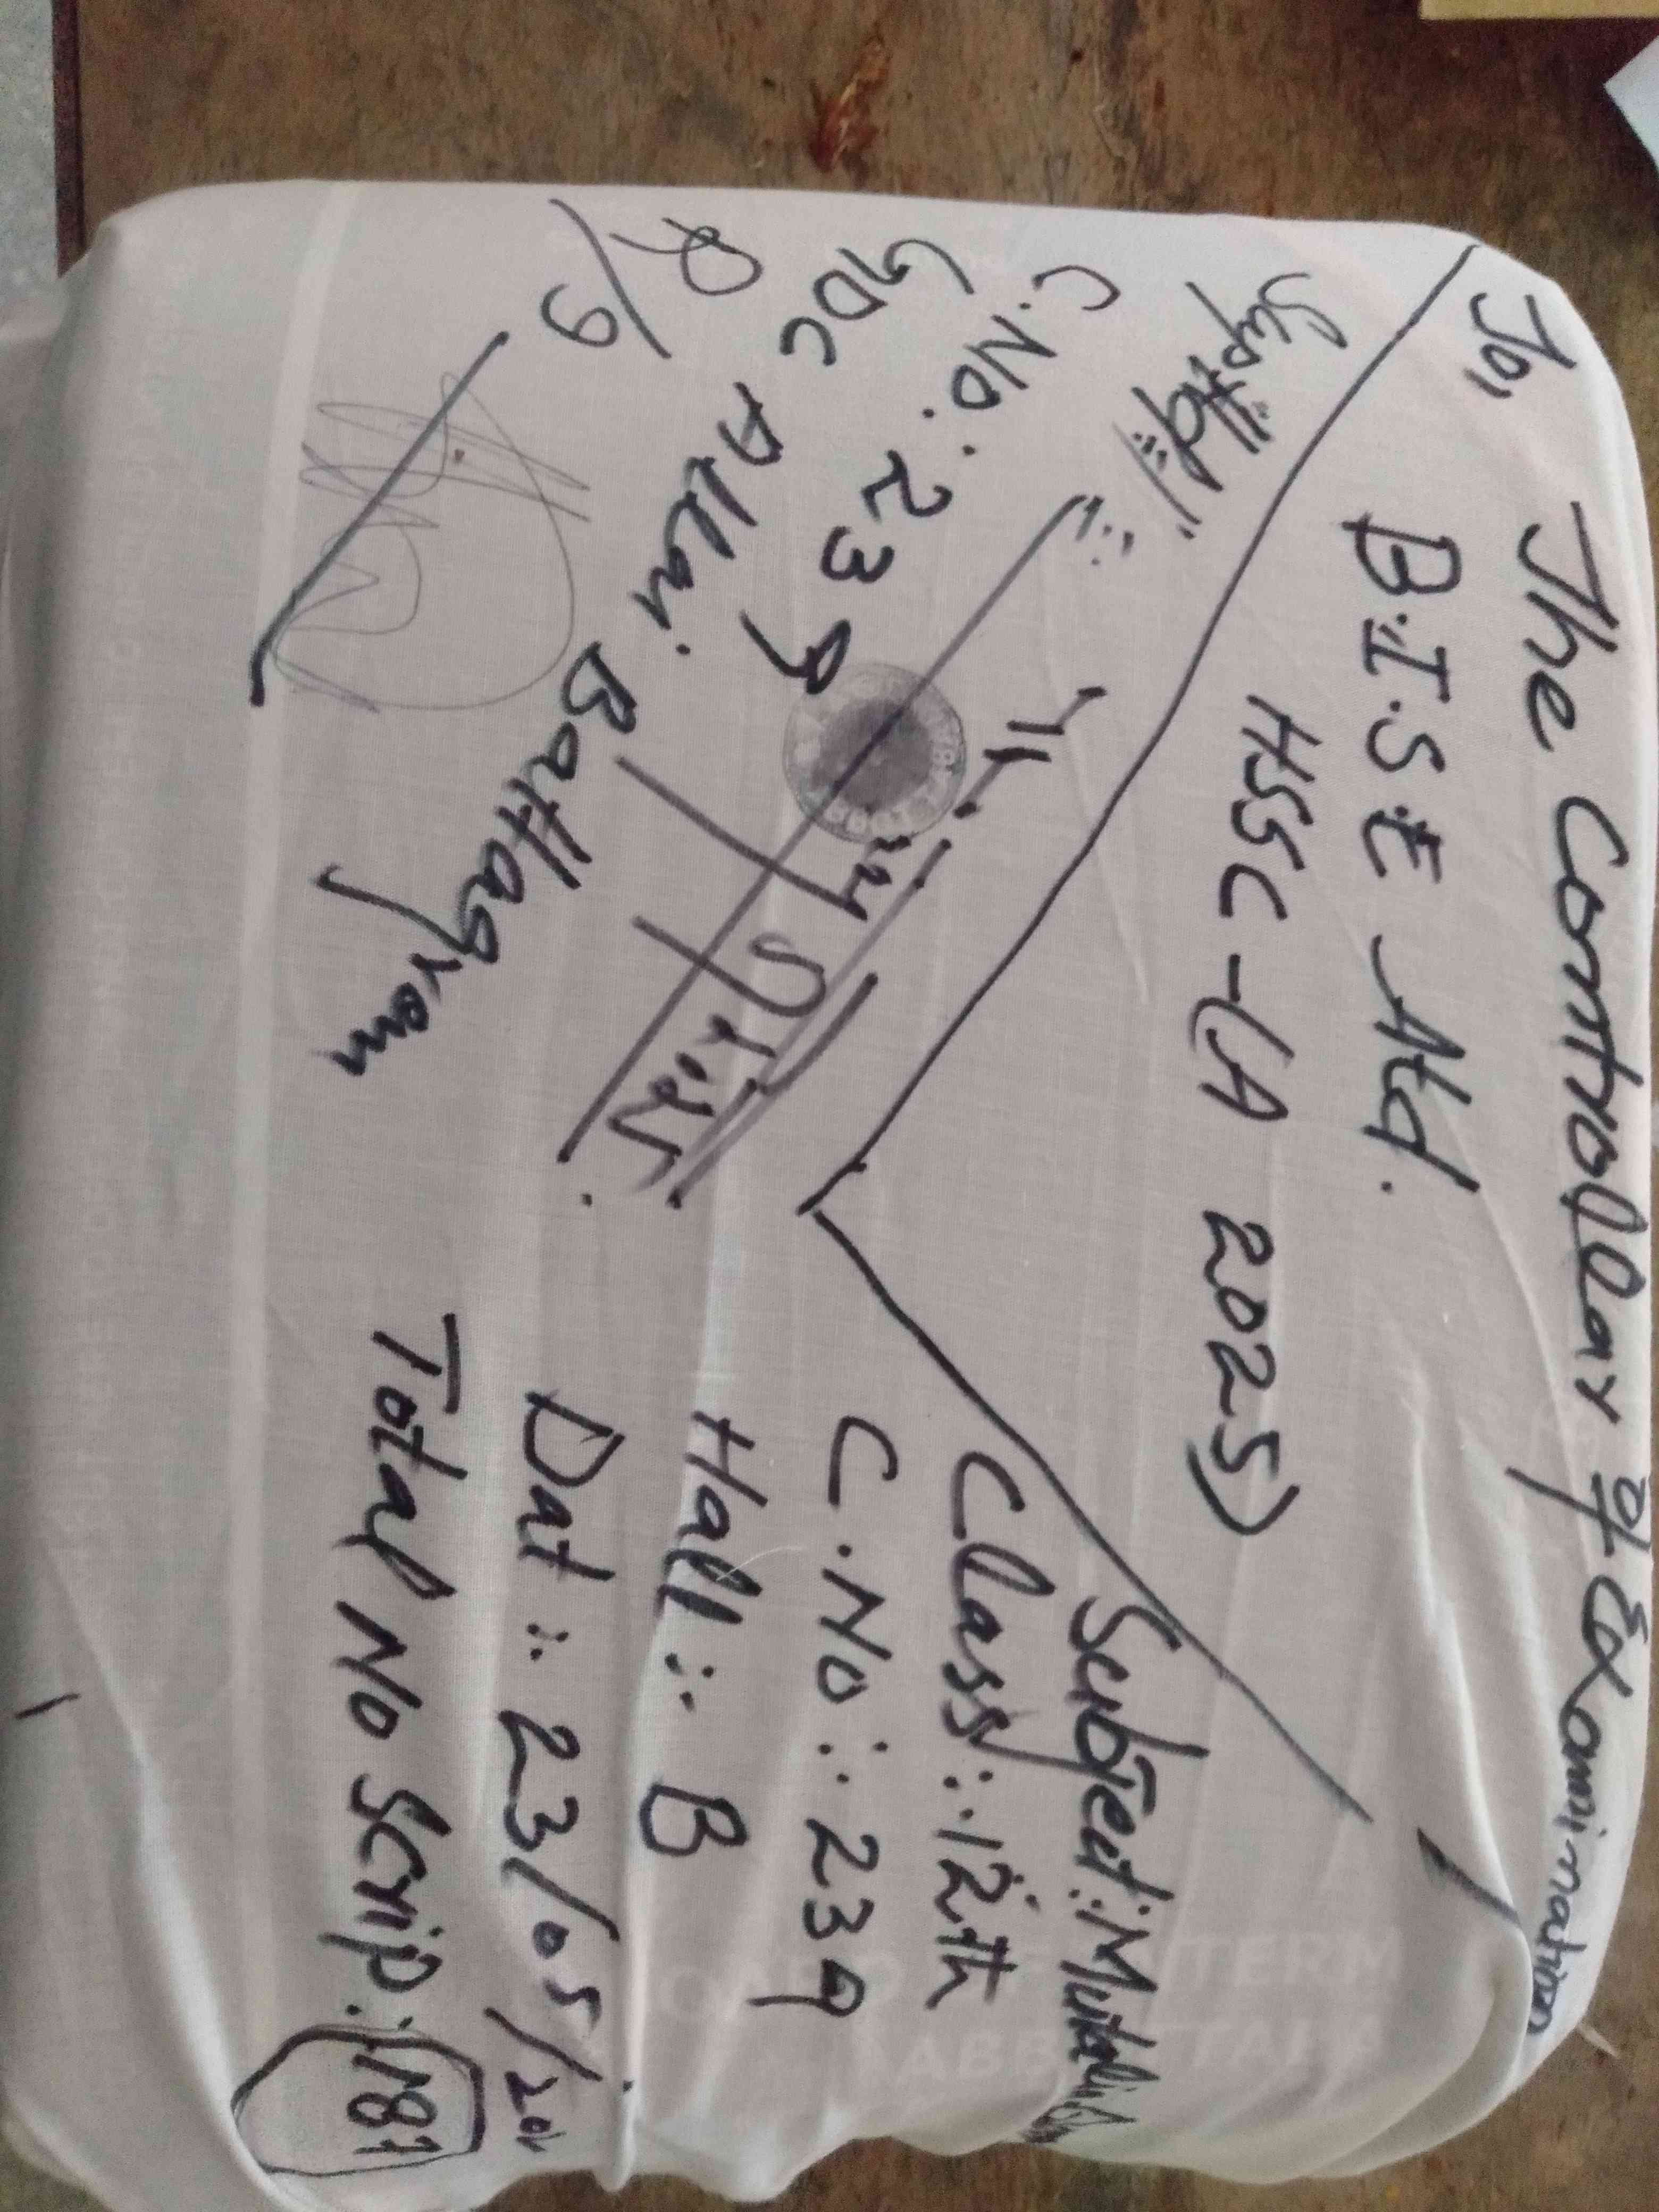 To,
The Controllar of Examination
B.I.S.E Atd.
HSSC-(A 2025)
Subject: Mutalia
Class: 12th
C.No: 239
Hall: B
Dat: 23/05/202
Total No Scrip: 181
Supttd
C.No: 239
GDC Allai Battagram
R/9